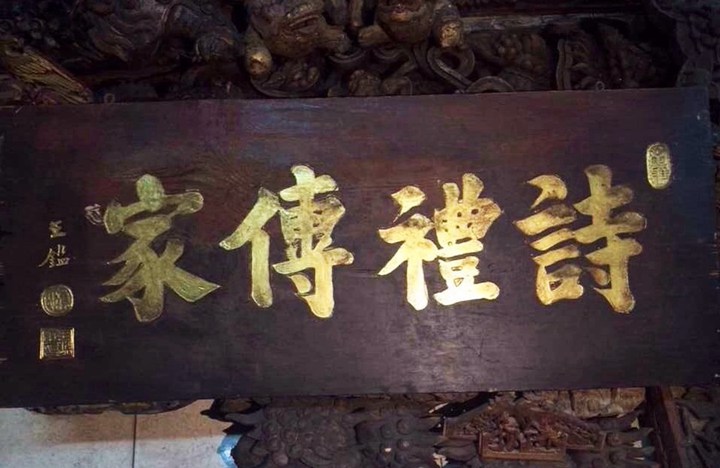 詩禮傳家
王鑑